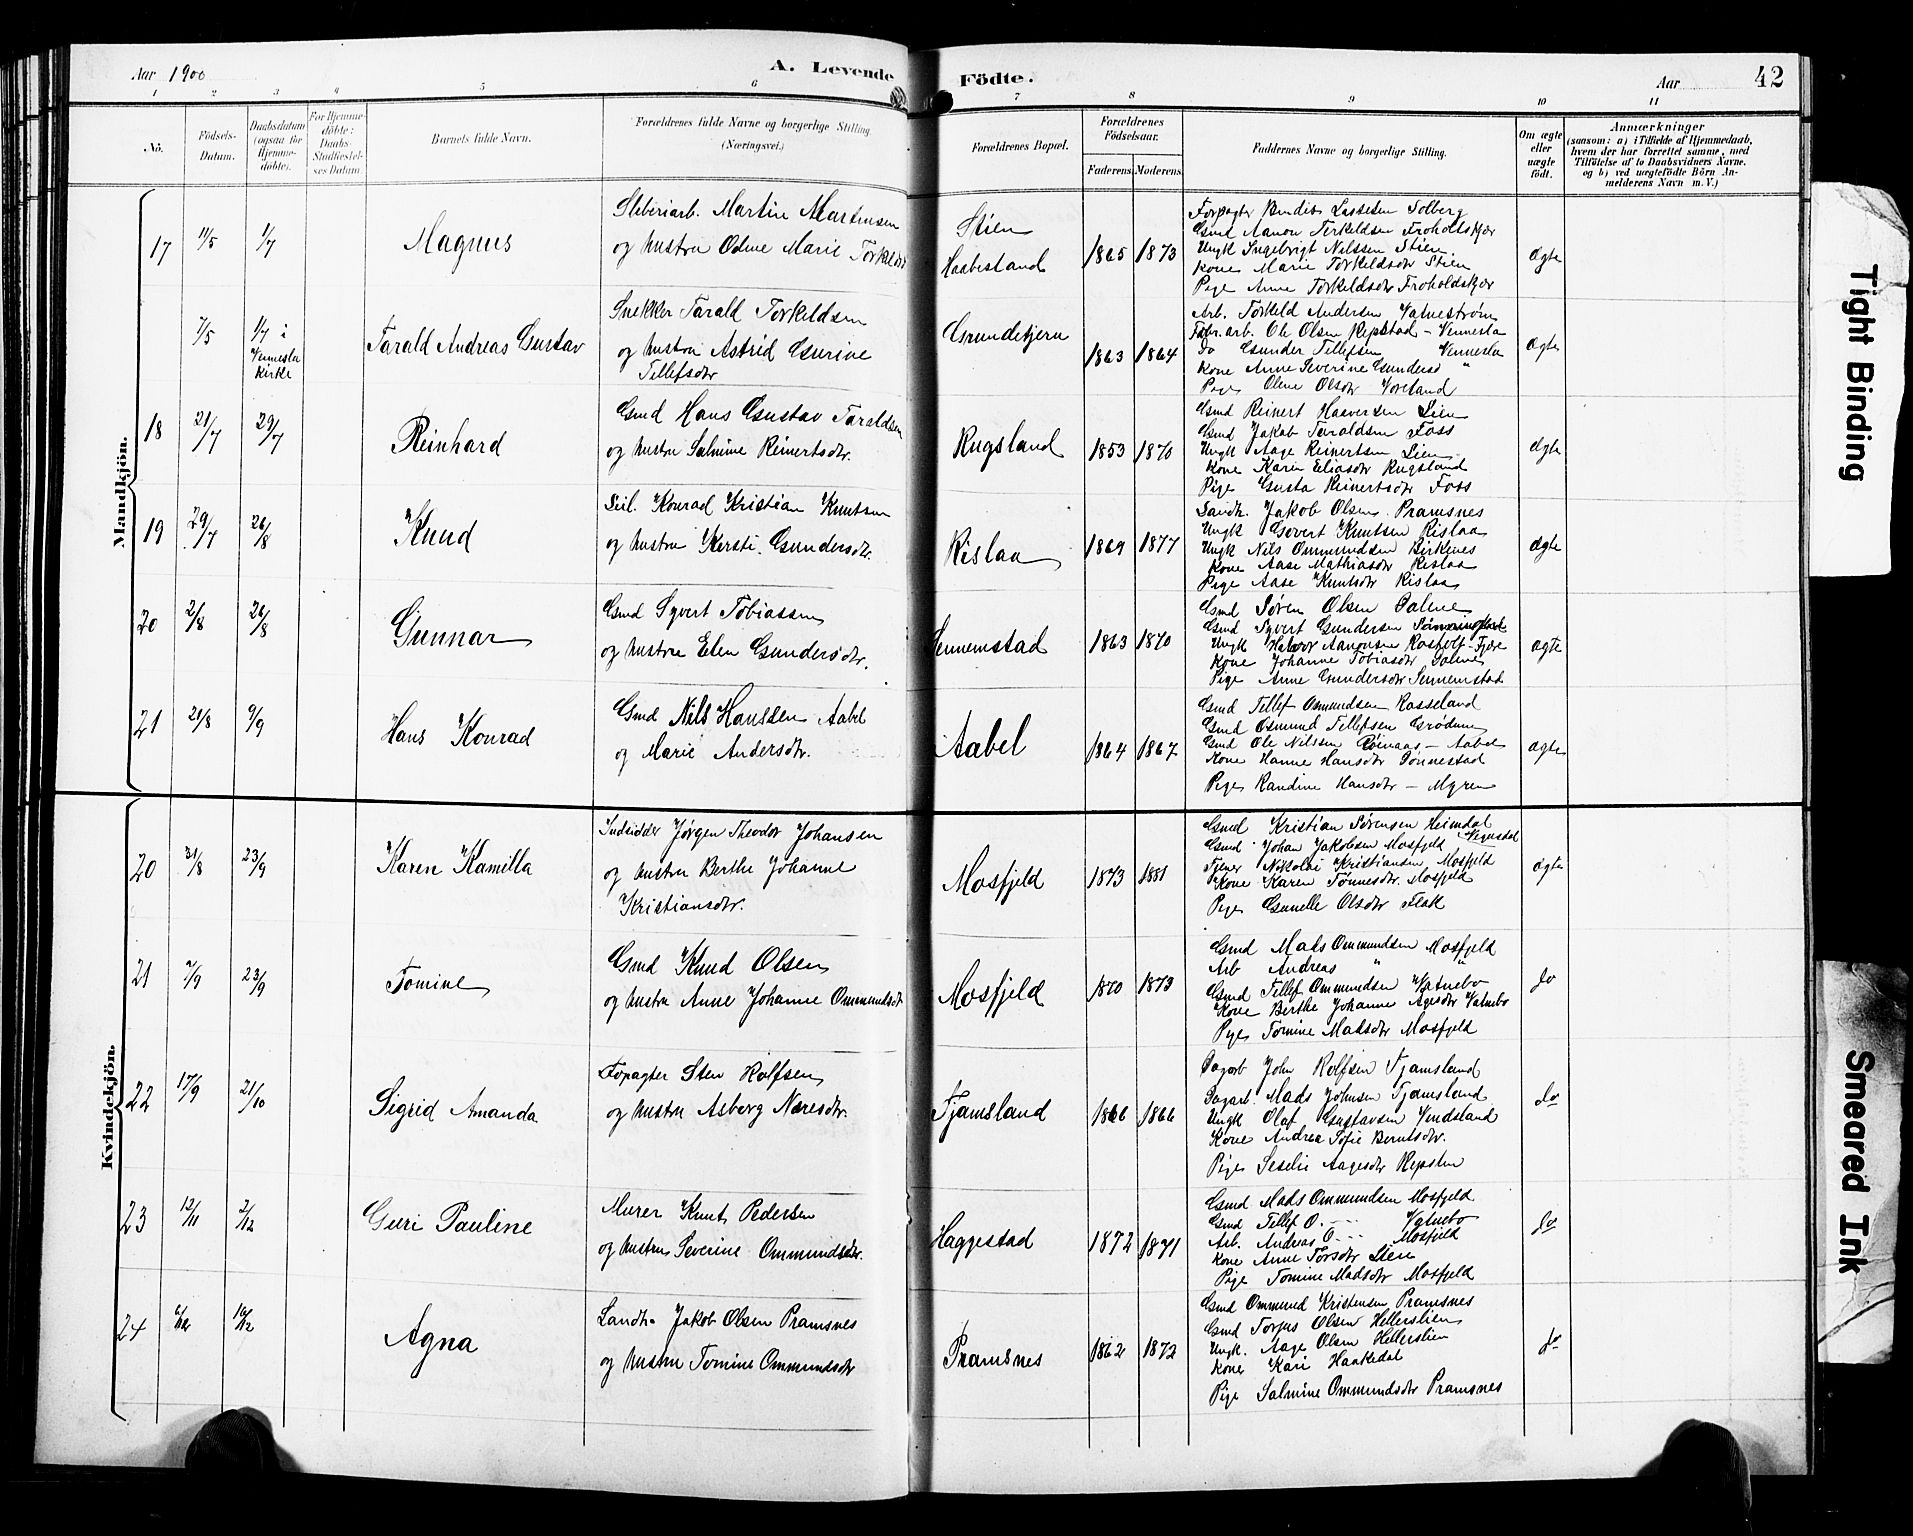 Aar 1900
A. Levende
Födte.
Aar
42
1 2 3 4 5 6 7 8 9 10 11
Nö.
Födsels-Datum.
Daabsdatum (ogsaa for Hjemme-döbte).
For Hjemme-döbte: Daabs-Stadfæstel-ses Datum.
Barnets fulde Navn.
Forældrenes fulde Navne og borgerlige Stilling. (Næringsvei.)
Forældrenes Bopæl.
Forældrenes Födselsaar.
Faderens Moderens
Faddernes Navne og borgerlige Stilling.
Om ægte eller uægte födt.
Anmærkninger
(saasom: a) i Tilfælde af Hjemmedaab,
hvem der har forrettet samme, med
Tilföielse af to Daabsvidners Navne,
og b) ved uægtefödte Börn An-
melderens Navn m. V.)
Mandkjön.
17 11/5 1/7 Magnus
Martin Martinsen
og hustru Oline Marie Torkelsdtr
Stien
Haabesland
1865 1873
Forpagter Bendix Lassesen Solberg
Gmd Aanon Terkeldsen Froholtskjær
Ungk Ingebrigt Nilssen Stien
Kone Marie Torkeldsdtr Stien
Pige Anne Torkeldsdtr Froholdskjær
Ægte
7/5 1/7 i Vennesla Kirke
Tarald Andreas Gustav
Snekker Tarald Torkeldsen
og hustru Astrid Gurine
Tellefsdtr
Grundetjern
1863 1864
Arb. Torkeld Andersen Vatnestrøm
Fabr. arb. Ole Olsen Repstad - Vennesla
Do Gunder Tellefsen Vennesla
Kone Anne Severine Gundersd "
Pige Oline Olsdtr
Ægte
18 21/7 29/7 Reinhard
Gmd Hans Gustav Taraldsen
og hustru Salmine Reinertsdtr.
Rugsland
1853 1870
Gmd Reinert Haaversen Lien
Gmd Jakob Taraldsen Foss
Ungk Aage Reinertsen Lien
Kone Karen Eliasdtr Rugsland
Pige Gusta Reinertsdtr Foss
Ægte
19 29/7 26/8 Knud
Konrad Kristian Knutsen
og hustru Kersti Gundersdtr.
Rislaa
1869 1877
Landh. Jakob Olsen Pramsnes
Ungk Govert Knutsen Rislaa
Ungk Nils Ommundsen Birkenes
Kone Aase Mathiasdtr Rislaa
Pige Aase Knutsdtr Rislaa
Ægte
20 2/8 26/8 Gunnar
Gmd Syvert Tobiassen
og hustru Elen Gundersdtr.
Sennemstad
1863 1870
Gmd Søren Olsen Dalene
Gmd Syvert Gundersen
Ungk Halvor Aanonsen Fjære
Kone Johanne Tobiasdtr Dalene
Pige Anne Gundersdtr Sennemstad
Ægte
21 20/8 9/9 Hans Konrad
Gmd Nils Hanssen Aabel
og Marie Andersdtr.
Aabel
1864 1867
Gmd Tellef Ommundsen Rosseland
Gmd Osmund Tellefsen Grødum
Gmd Ole Nilssen Røinaas - Aabel
Kone Hanne Hansdtr Tønnestad
Pige Randine Hansdtr - Myren
Ægte
Kvindekjön.
20 31/8 23/9 Karen Kamilla
Indsidder Jørgen Theodor Johansen
og hustru Berthe Johanne
Kristiansdtr.
Mosfjeld
1873 1881
Gmd Kristian Sørensen Heimdal
Vegusdal
Gmd Johan Jakobsen Mosfjeld
Tjener Nikolai Kristiansen Mosfjeld
Kone Karen Tønnesdtr. Mosfjeld
Pige Gunelle Olsdtr Flak
Ægte
21 7/9 23/9 Tomine
Gmd Knud Olsen
og hustru Anne Johanne Ommundsdtr
Mosfjeld
1870 1873
Gmd Mads Ommundsen Mosfjeld
Arb Andreas " "
Gmd Tellef Ommundsen Vatnebo
Kone Berthe Johanne Agesdtr Vatnebo
Pige Tomine Madsdtr Mosfjeld
do
22 17/9 21/10 Sigrid Amanda
Fopagter Sten Rolfsen
og hustru Asborg Næresdtr.
Tjamsland
1866 1866
Dagarb John Rolfsen Tjamsland
Dagarb. Mads Johnsen Tjamsland
Ungk Olaf Gustavsen Vindsland
Kone Andrea Sofie Berntsdtr.
Pige Seselie Aagesdtr Repsten
do
23 12/11 2/12 Guri Pauline
Murer Knut Pedersen
og hustru Severine Ommundsdtr.
Haggestad
1872 1871
Gmd Mads Ommundsen Mosfjeld
Gmd Tellef O. - - - Vatnebo
Arb. Andreas O - - - Mosfjeld
Kone Anne Torsdtr Lien
Pige Tomine Madsdtr Mosfjeld
do
24 6/12 16/12 Agna
Landh. Jakob Olsen Pramsnes
og hustru Tomine Ommundsdtr
Pramsnes
1862 1872
Gmd Ommund Kristensen Pramsnes
Gmd Torjus Olsen Hellerslien
Ungk. Aage Olsen Hellerslien
Kone Kari Haakedal
Pige Salmine Ommundsdtr Pramsnes
do
Tight Binding
Smeared Ink